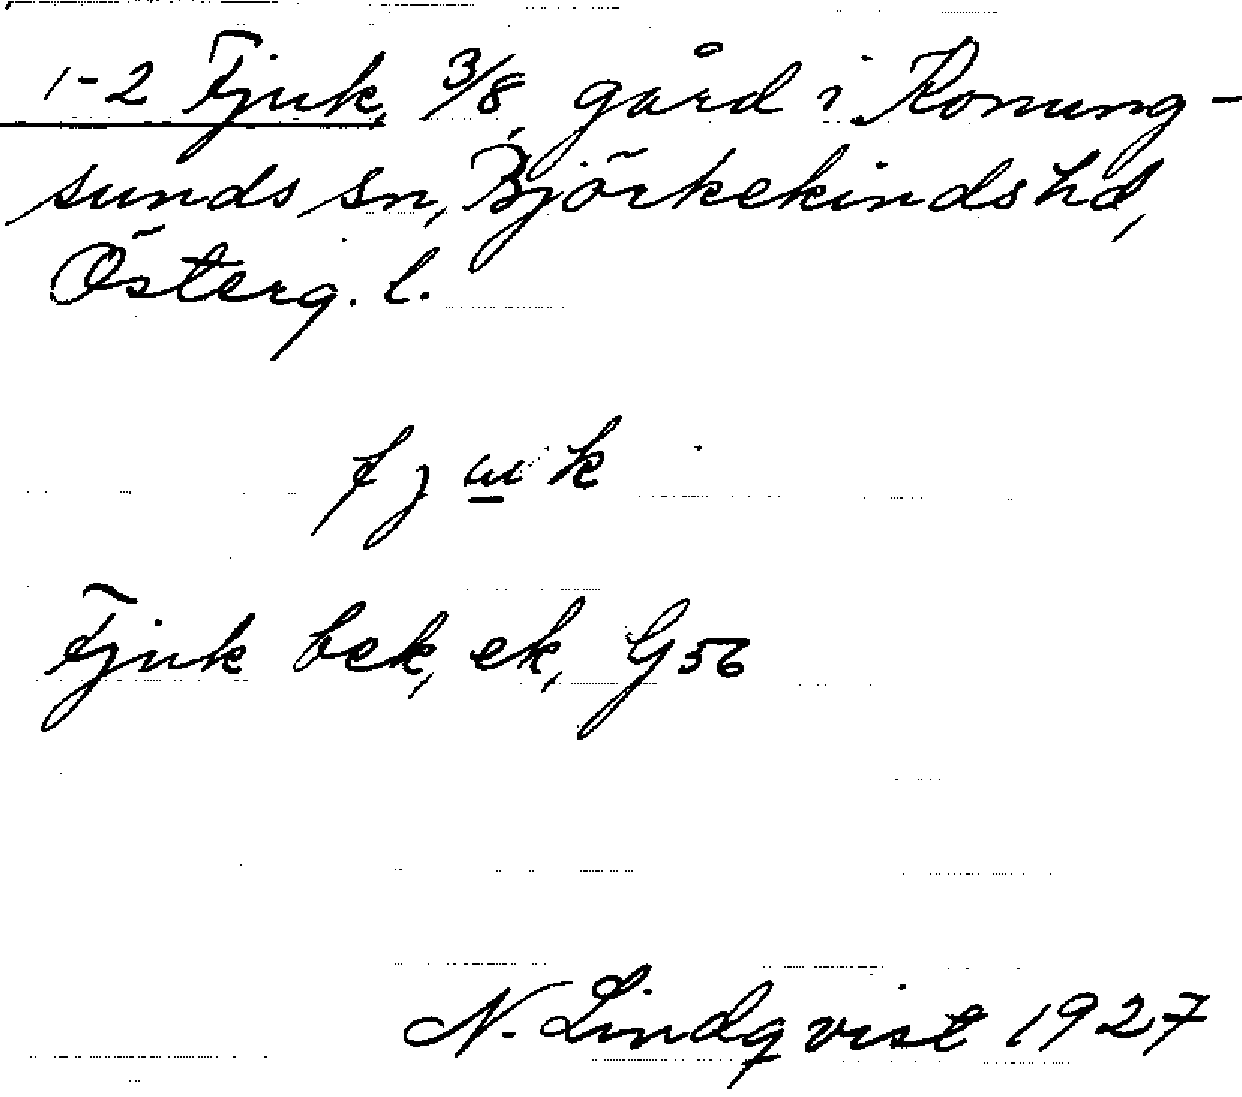 1-2 Fjuk, 3/8 gård i Konung-
sunds sn, Björkekinds hd,
Österg. l.
fjuk
Fjuk bek, ek, G56
N. Lindqvist 1927